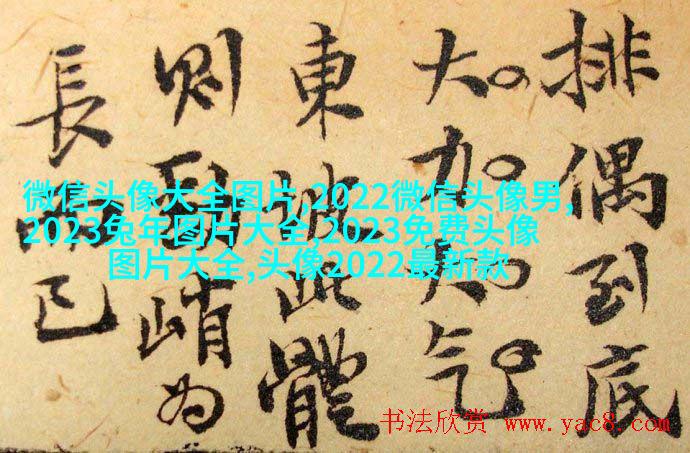 排偶到底
大气
東坡此體
則峭為
長而已
微信头像大全图片,2022微信头像男,
2023兔年图片大全,2023免费头像
图片大全,头像2022最新款
书法欣赏 www.yac8.com